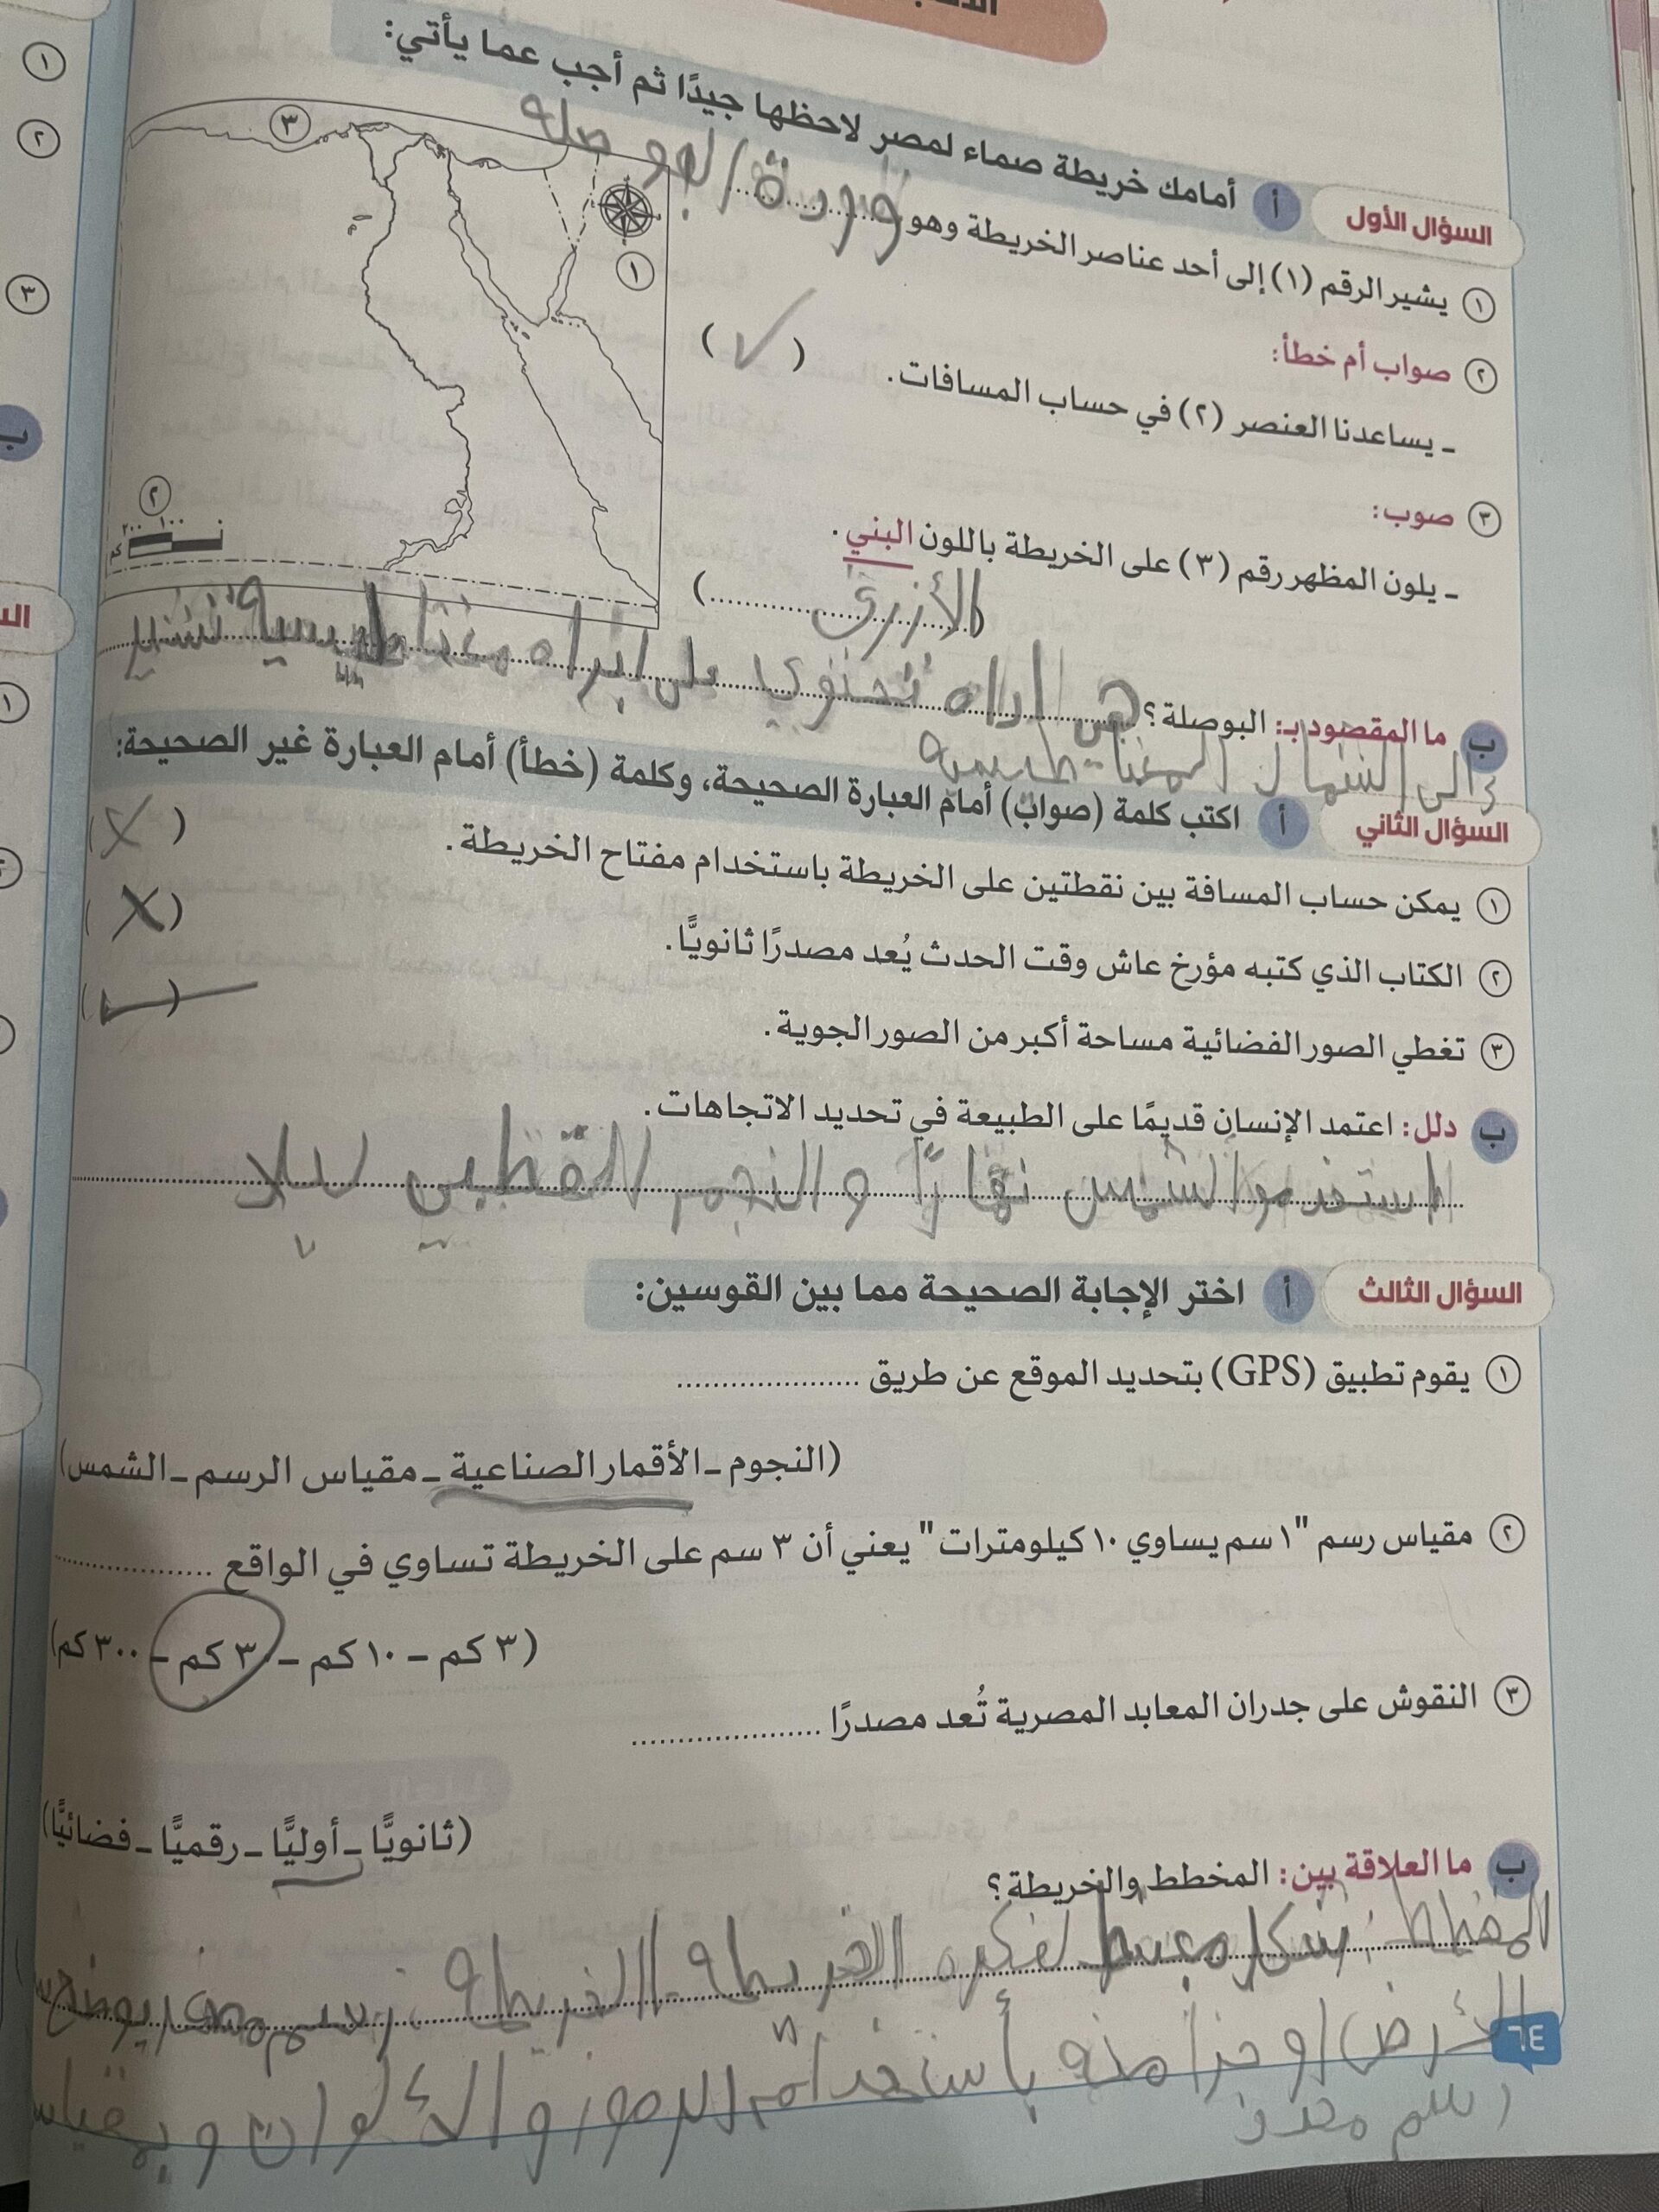 السؤال الأول أ أمامك خريطة صماء لمصر لاحظها جيدًا ثم أجب عما يأتي:
١ يشير الرقم (١) إلى أحد عناصر الخريطة وهو وردة البوصله
٢ صواب أم خطأ:
ـ يساعدنا العنصر (٢) في حساب المسافات. ( ✓ )
٣ صوب:
ـ يلون المظهر رقم (٣) على الخريطة باللون البني. (الأزرق)
٣
١
٢
٢٠٠ ١٠٠
كم
ب ما المقصود بـ: البوصلة؟ هي اداه تحتوي على ابراه مغناطيسية تشير
إلى الشمال المغناطيسيه
السؤال الثاني أ اكتب كلمة (صواب) أمام العبارة الصحيحة، وكلمة (خطأ) أمام العبارة غير الصحيحة:
١ يمكن حساب المسافة بين نقطتين على الخريطة باستخدام مفتاح الخريطة. ( X )
٢ الكتاب الذي كتبه مؤرخ عاش وقت الحدث يُعد مصدرًا ثانويًّا. ( X )
٣ تغطي الصور الفضائية مساحة أكبر من الصور الجوية. ( ✓ )
ب دلل: اعتمد الإنسان قديمًا على الطبيعة في تحديد الاتجاهات.
استخدمو الشمس نهارًا والنجم القطبي ليلا
السؤال الثالث أ اختر الإجابة الصحيحة مما بين القوسين:
١ يقوم تطبيق (GPS) بتحديد الموقع عن طريق ....................
(النجوم ـ الأقمار الصناعية ـ مقياس الرسم ـ الشمس)
٢ مقياس رسم "١ سم يساوي ١٠ كيلومترات" يعني أن ٣ سم على الخريطة تساوي في الواقع ....................
(٣ كم – ١٠ كم – ٣٠ كم – ٣٠٠ كم)
٣ النقوش على جدران المعابد المصرية تُعد مصدرًا ....................
(ثانويًّا ـ أوليًّا ـ رقميًّا ـ فضائيًّا)
ب ما العلاقة بين: المخطط والخريطة؟
المخطط: شكل مبسط لفكره الخريطه الخريطه: رسم مصغر يوضح س
الأرض او جزا منه بأستخدام الرموز والألوان وبمقياس
رسم محدد
٣٤
١
٢
٣
ب